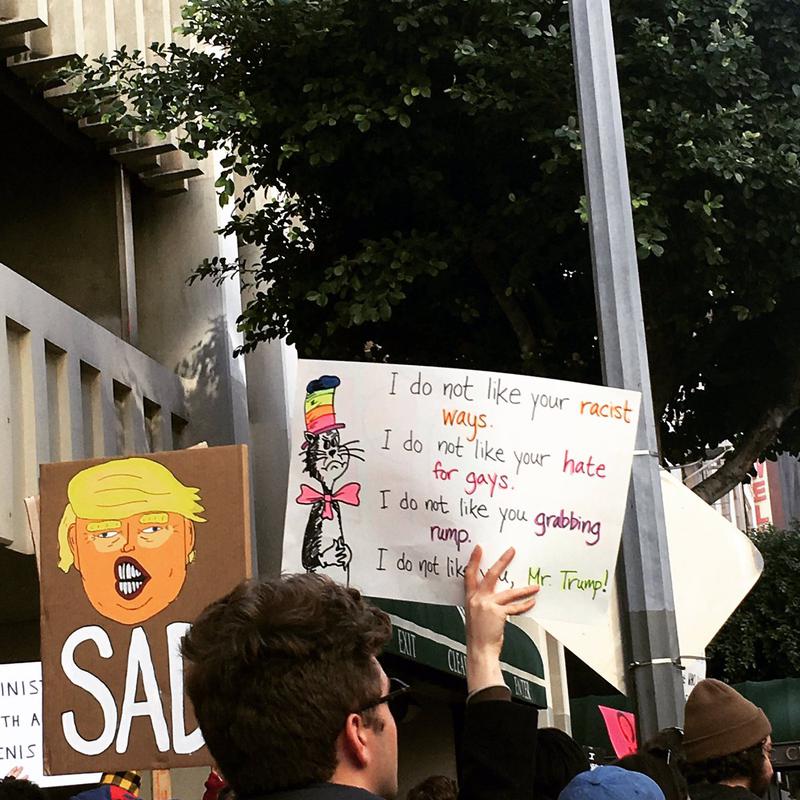 I do not like your racist
ways.
I do not like your hate
for gays.
I do not like you grabbing
rump.
I do not like you, Mr. Trump!
SAD
INIST
TH A
INIS
EXIT
ENTER
VEL